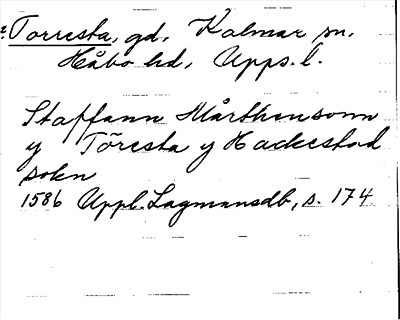 Torresta, gd, Kalmar sn.
Håbo hd, Upps. l.
Staffann Mårthensonn
y Töresta y Hackestad
sokn
1586 Uppl. Lagmansdb, s. 174